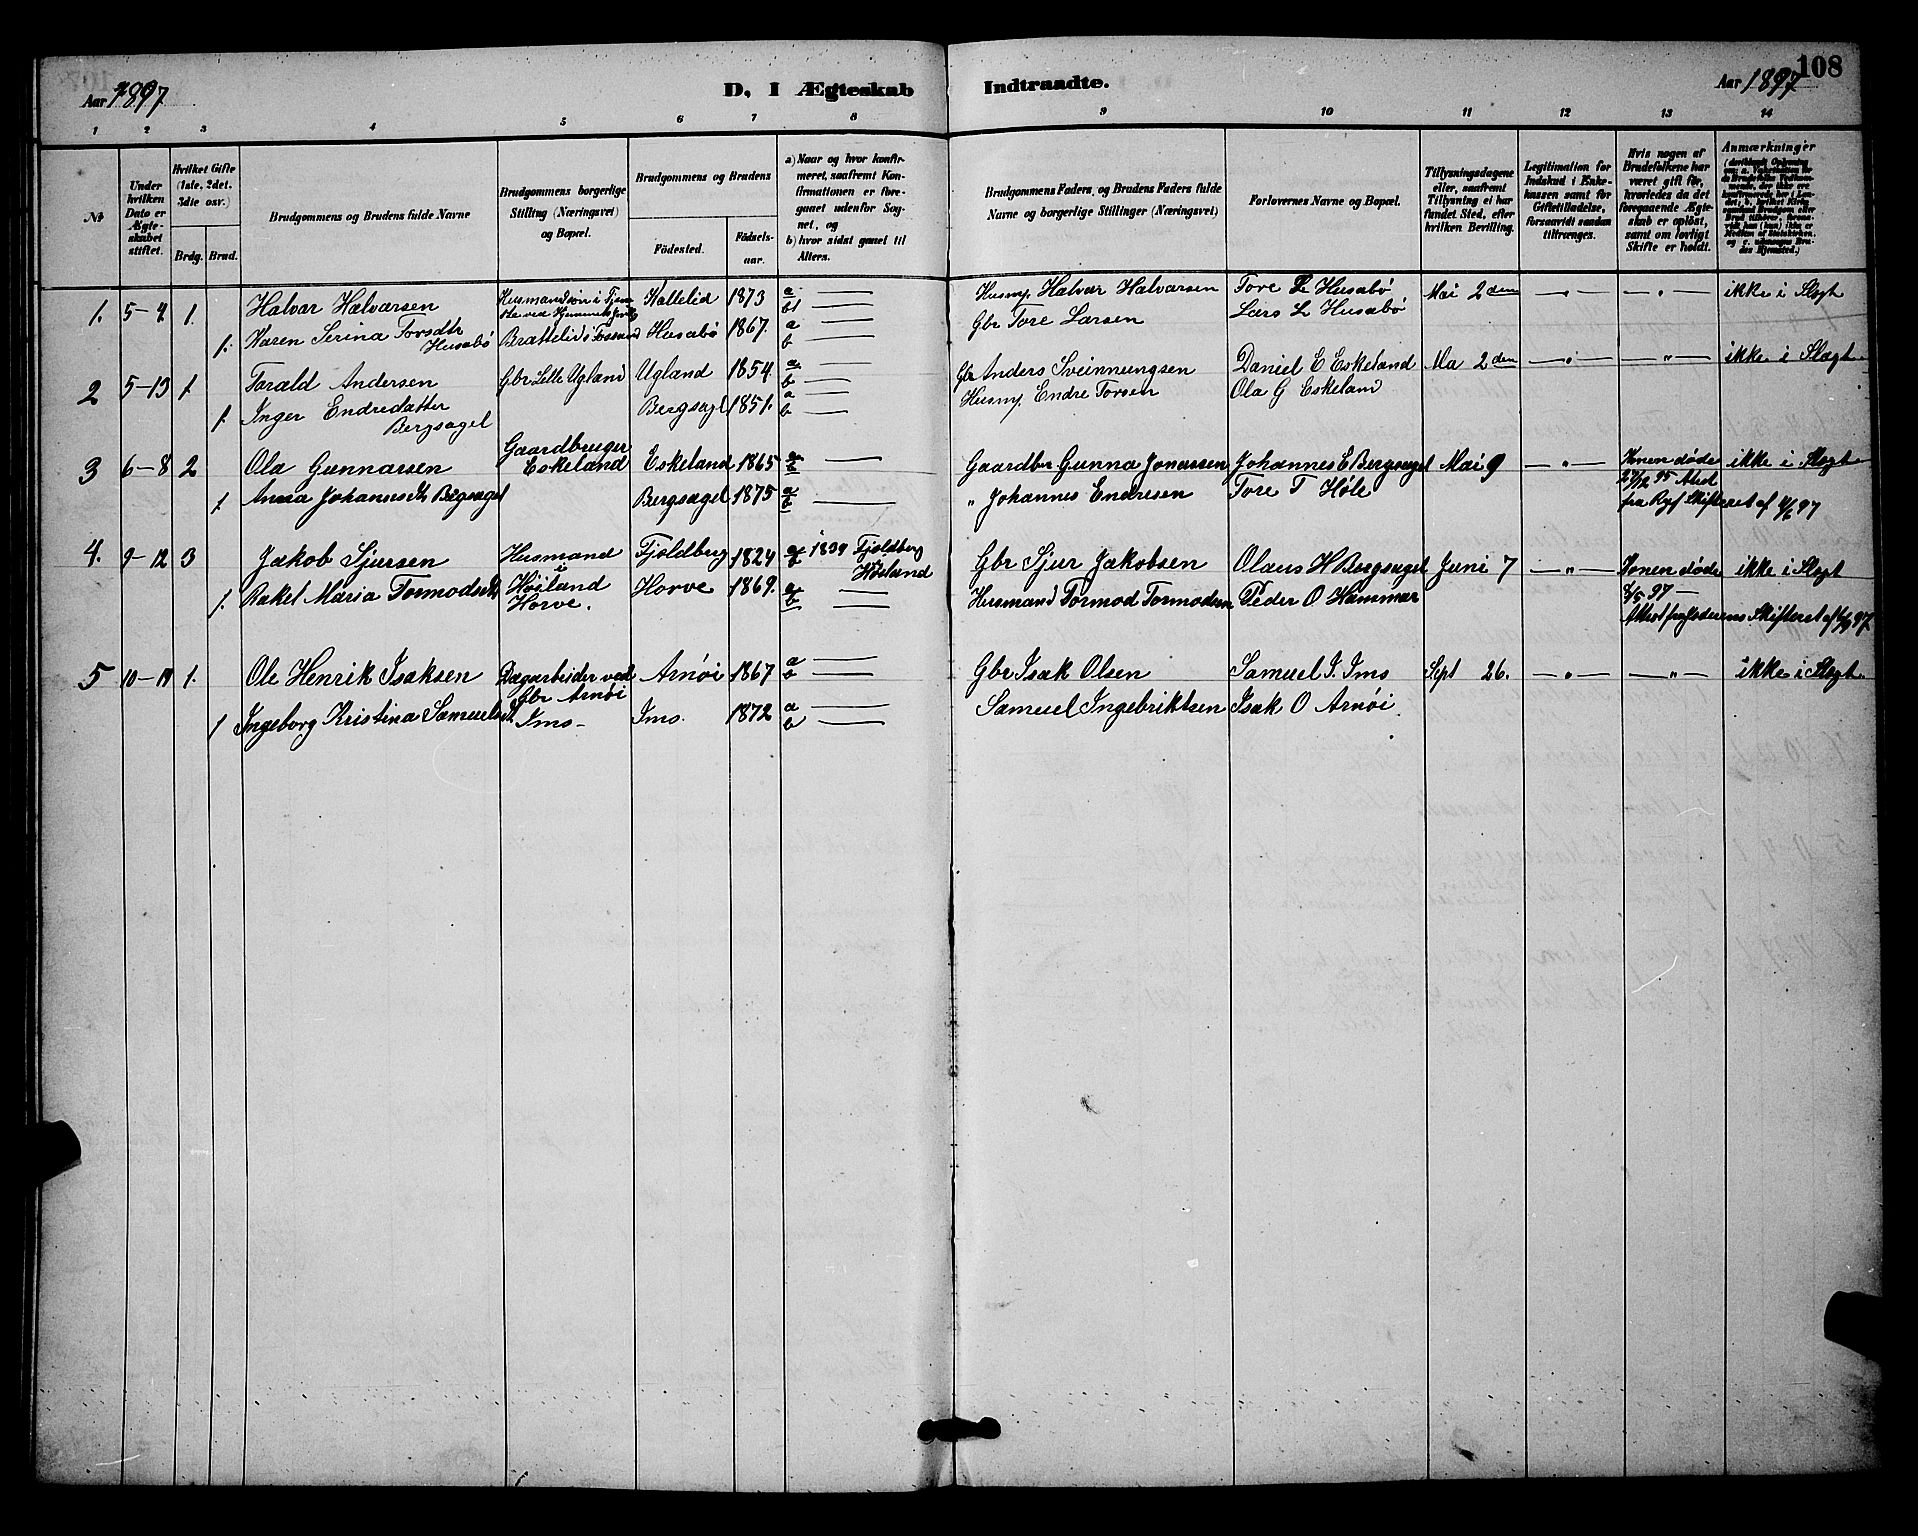 108
Aar 1897
D, I Ægteskab Indtraadte.
Aar 1897
1 2 3 4 5 6 7 8 9 10 11 12 13 14
№
Under hvilken Dato er Ægteskabet stiftet.
Hvilket Gifte (1ste, 2det, 3die osv.)
Brdg. Brud.
Brudgommens og Brudens fulde Navne
Brudgommens borgerlige Stilling (Næringsvei) og Bopæl.
Brudgommens og Brudens
Födested. Födselsaar.
a) Naar og hvor konfirmeret, saafremt Konfirmationen er foregaaet udenfor Sognet, og
b) hvor sidst gaaet til Alters.
Brudgommens Faders, og Brudens Faders fulde Navne og borgerlige Stillinger (Næringsvei)
Forlovernes Navne og Bopæl.
Tillysningsdagene eller, saafremt Tillysning ei har fundet Sted, efter hvilken Bevilling.
Legitimation for Indskud i Enkekassen samt for Giftetilladelse, forsaavidt saadan tiltrænges.
Hvis nogen af Brudefolkene har været gift för, hvorledes da det foregaaende Ægteskab er oplöst, samt om lovligt Skifte er holdt.
Anmærkninger
1. 5-4 1. Halvar Halvarsen Husmandssön i Kallelid 1873 a — Husmp. Halvar Halvarsen Tore L Husabø Mai 2den — " — — " — ikke i Slægt
b
1. Karen Serina Torsdtr Husabø Brattelid i Fossand Husabø 1867. a — b — Gbr Tore Larsen Lars L Husabø
2 5-13 1. Torald Andersen Gbr Lille Ugland Ugland 1854. a — b — Gbr Anders Sveinnungsen Daniel E Eskeland Ma 2den — " — — " — ikke i Slægt
1. Inger Endredatter Bergsagel Bergsagel 1851. a — b — Husmp. Endre Torsen Ola G Eskeland
3 6-8 2 Ola Gunnarsen Gaardbruger Eskeland Eskeland 1865 a b — Gaardbr Gunna Jonassen Johannes E Bergsagel Mai 9 — " — Konen døde ikke i Slægt
1. Anna Johannesdt Bergsagel Bergsagel 1875 a b — " Johannes Endresen Tore T Høle 27/12 95 Attest
fra Ryf Skifteret af 97
4. 9-12 3 Jakob Sjursen Husmand Fjeldberg 1824 a b 1839 Fjeldberg Høiland Gbr Sjur Jakobsen Olaus H Bergsagel Juni 7 — " — Konen døde ikke i Slægt
i Høiland
1. Rakel Maria Tormodsdt Horve. Horve 1869. a — b — Husmand Tormod Tormodsen Peder O Hammar 97 —
Skifteret af 97
5 10-19 1. Ole Henrik Isaksen Dagarbeider ved Gbr Arnøi Arnøi 1867 a — b — Gbr Isak Olsen Samuel I. Ims Sept 26. — " — — " — ikke i Slægt
1 Ingeborg Kristina Samuelsdt Ims - Ims. 1872 a — b — Samuel Ingebriktsen Isak O Arnøi.